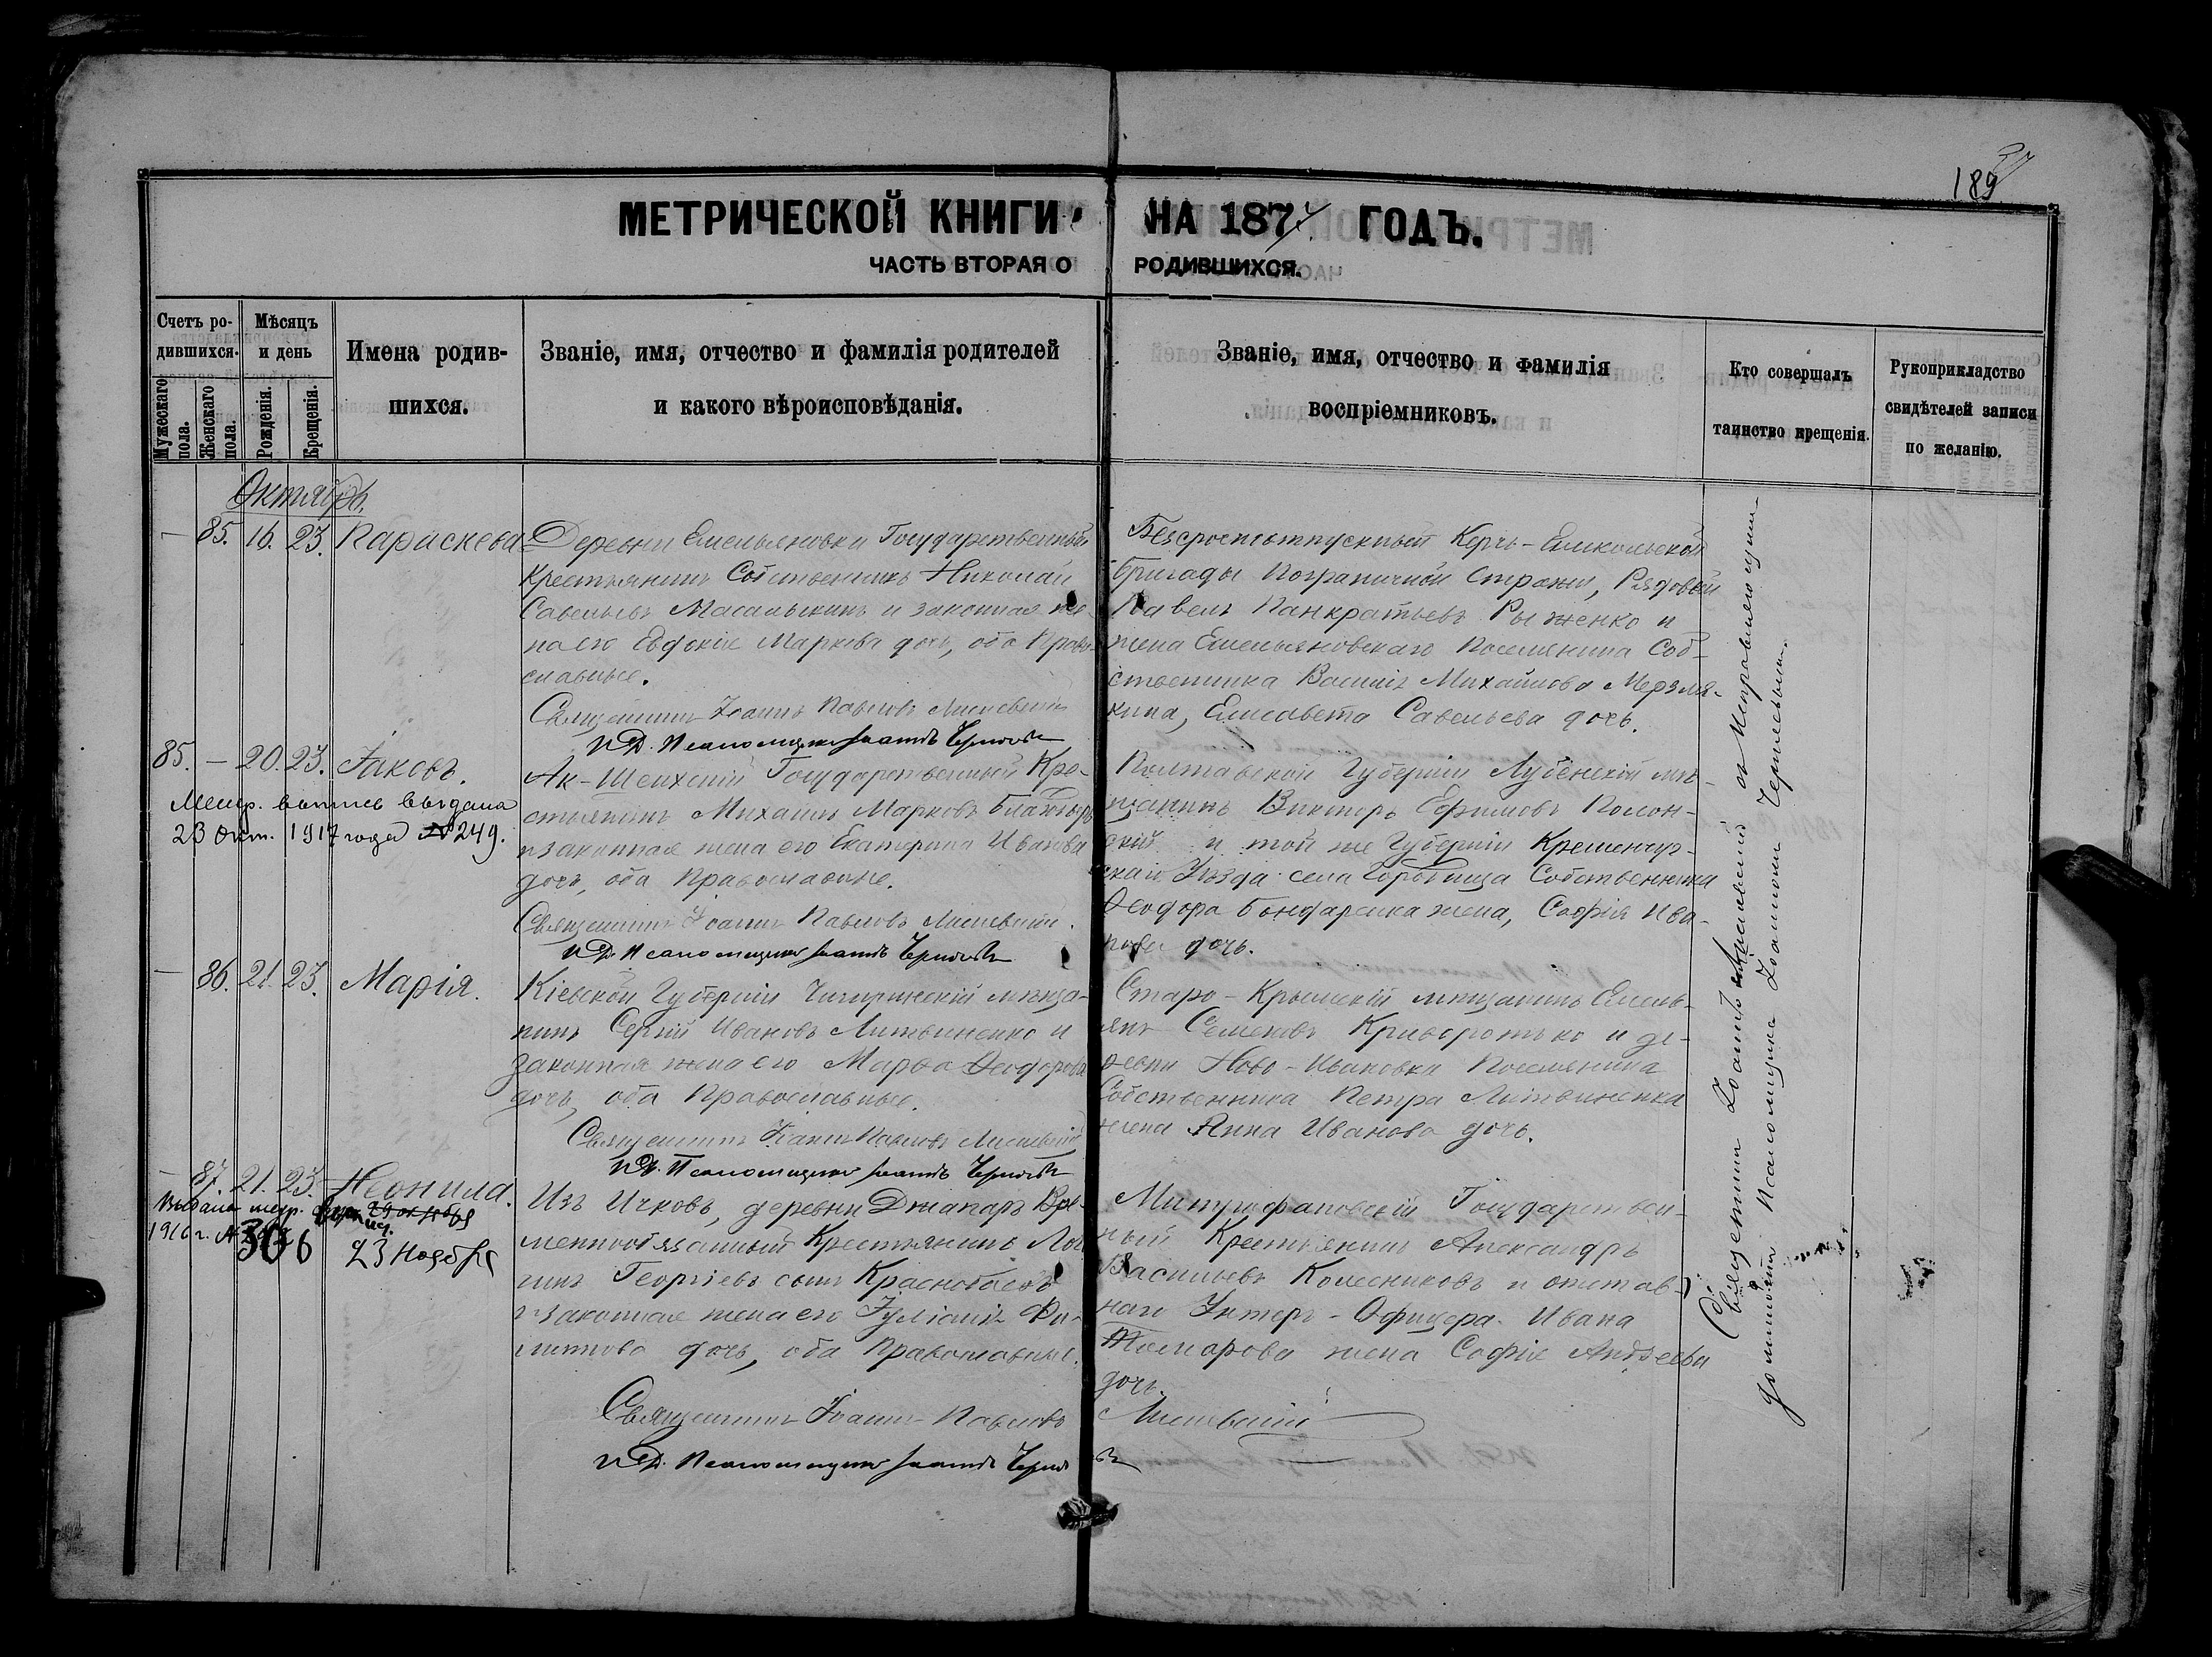 189
МЕТРИЧЕСКОЙ КНИГИ НА 1874 ГОДЪ.
ЧАСТЬ ВТОРАЯ О РОДИВШИХСЯ.
Счетъ родившихся.
Мужескаго пола.
Женскаго пола.
Мѣсяцъ и день
Рожденія.
Крещенія.
Имена родив-
шихся.
Званіе, имя, отчество и фамилія родителей
и какого вѣроисповѣданія.
Званіе, имя, отчество и фамилія
воспріемниковъ.
Кто совершалъ
таинство крещенія.
Рукоприкладство
свидѣтелей записи
по желанію.
Октябрь.
— 85. 16. 23. Параскева
Деревни Емельяновки Государственный
Крестьянинъ Собственникъ Николай
Савельевъ Масалыкинъ и законная же-
на его Евдокія Маркова дочь, оба Право-
славные.
Священникъ Іоаннъ Павловъ
И. Д. Псаломщика Іоаннъ
Безсрочноотпускный Керчь-Еникольской
бригады Пограничной Стражи, Рядовый
Павелъ Панкратьевъ Рыженко и
жена Емельяновскаго Поселянина Соб-
ственника Василія Михайлова Мерзля-
кина, Елисавета Савельева дочь.
85. — 20. 23. Іаковъ.
Метр. выпись выдана
23 Окт. 1917 года № 249.
Ак-Шеихскій Государственный Кре-
стьянинъ Михаилъ Марковъ
и законная жена его Екатерина Иванова
дочь, оба Православные.
Священникъ Іоаннъ Павловъ
И. Д. Псаломщика Іоаннъ
Полтавской Губерніи Лубенскій мѣ-
щанинъ Викторъ Ефимовъ Полон-
скій и той же Губерніи Кременчуг-
скаго Уѣзда села Собственника
Ѳеодора Бондаренка жена, Софія Ива-
нова дочь.
— 86. 21. 23. Марія.
Кіевской Губерніи Чигиринскій мѣща-
нинъ Сергій Ивановъ Литвиненко и
законная жена его Марѳа Ѳеодорова
дочь, оба Православные.
Священникъ Іоаннъ Павловъ
И. Д. Псаломщика Іоаннъ
Старо-Крымскій мѣщанинъ Емель-
янъ Семеновъ Криворотько и де-
ревни Ново-Ивановки Поселянина
Собственника Петра Литвиненка
жена Анна Иванова дочь.
— 87. 21. 23. Неонила.
Выдана метр.
29 октября
1916 г. № 306 23 Ноября
Изъ Ичковъ, деревни Джапаръ Вре-
меннообязанный Крестьянинъ Лог-
гинъ Георгіевъ сынъ
и законная жена его Іуліанія Фи-
липпова дочь, оба Православные.
Священникъ Іоаннъ Павловъ
И. Д. Псаломщика Іоаннъ
Государствен-
ный Крестьянинъ Александръ
Васильевъ Колесниковъ и отстав-
наго Унтеръ-Офицера Ивана
жена Софія Андреева
дочь.
Священникъ Іоаннъ съ Исправляющимъ
должность Псаломщика Іоанномъ